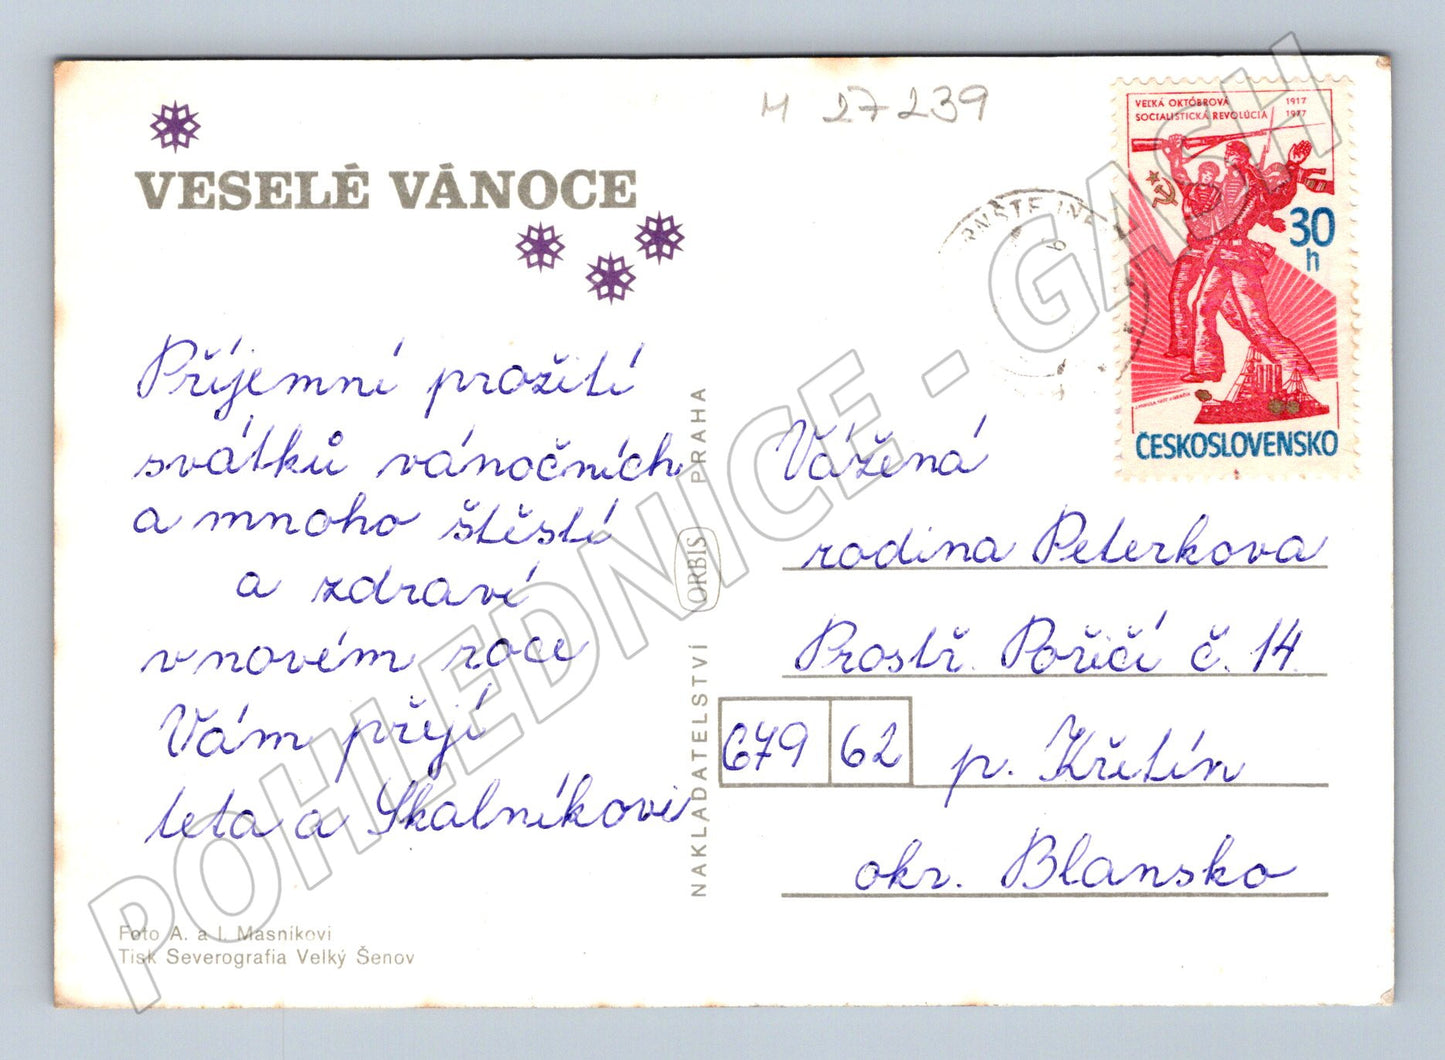 M 27239
VESELÉ VÁNOCE
Příjemní prožití
svátků vánočních
a mnoho štěstí
a zdraví
v novém roce
Vám přejí
teta a Skalníkovi
Foto A. a I. Masníkovi
Tisk Severografia Velký Šenov
NAKLADATELSTVÍ ORBIS PRAHA
VEĽKÁ OKTÓBROVÁ 1917
SOCIALISTICKÁ REVOLÚCIA 1977
30
h
ČESKOSLOVENSKO
Vážená
rodina Peterkova
Prostř. Poříčí č. 14
679 62 p. Křetín
okr. Blansko
POHLEDNICE - GASH